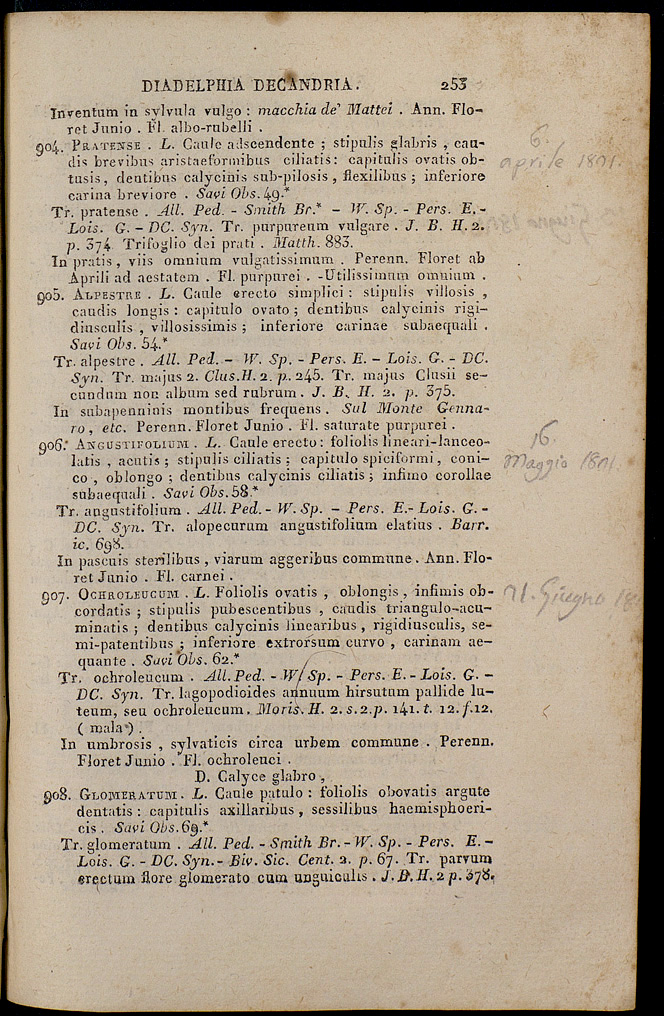 DIADELPHIA DECANDRIA. 253
Inventum in sylvula vulgo : macchia de' Mattei . Ann. Flo-
ret Junio . Fl. albo-rubelli .
904. PRATENSE . L. Caule adscendente ; stipulis glabris , cau-
dis brevibus aristaeformibus ciliatis : capitulis ovatis ob-
tusis , dentibus calycinis sub-pilosis , flexilibus ; inferiore
carina breviore . Savi Obs. 49.*
Tr. pratense . All. Ped. - Smith Br.* - W. Sp. - Pers. E. -
Lois. G. - DC. Syn. Tr. purpureum vulgare . J. B. H. 2.
p. 374 Trifoglio dei prati . Matth. 883.
In pratis , viis omnium vulgatissimum . Perenn. Floret ab
Aprili ad aestatem . Fl. purpurei . -Utilissimum omnium .
905. ALPESTRE . L. Caule erecto simplici : stipulis villosis ,
caudis longis : capitulo ovato ; dentibus calycinis rigi-
diusculis , villosissimis ; inferiore carinae subaequali .
Savi Obs. 54.*
Tr. alpestre . All. Ped. - W. Sp. - Pers. E. - Lois. G. - DC.
Syn. Tr. majus 2. Clus. H. 2. p. 245. Tr. majus Clusii se-
cundum non album sed rubrum . J. B. H. 2. p. 375.
In subapenninis montibus frequens . Sul Monte Genna-
ro , etc. Perenn. Floret Junio . Fl. saturate purpurei .
906. ANGUSTIFOLIUM . L. Caule erecto : foliolis lineari-lanceo-
latis , acutis ; stipulis ciliatis ; capitulo spiciformi , coni-
co , oblongo ; dentibus calycinis ciliatis ; infimo corollae
subaequali . Savi Obs. 58.*
Tr. angustifolium . All. Ped. - W. Sp. - Pers. E. - Lois. G. -
DC. Syn. Tr. alopecurum angustifolium elatius . Barr.
ic. 698.
In pascuis sterilibus , viarum aggeribus commune . Ann. Flo-
ret Junio . Fl. carnei .
907. OCHROLEUCUM . L. Foliolis ovatis , oblongis , infimis ob-
cordatis ; stipulis pubescentibus , caudis triangulo-acu-
minatis ; dentibus calycinis linearibus , rigidiusculis, se-
mi-patentibus ; inferiore extrorsum curvo , carinam ae-
quante . Savi Obs. 62.*
Tr. ochroleucum . All. Ped. - W. Sp. - Pers. E. - Lois. G. -
DC. Syn. Tr. lagopodioides annuum hirsutum pallide lu-
teum, seu ochroleucum . Moris. H. 2. s. 2. p. 141. t. 12. f. 12.
( mala ) .
In umbrosis , sylvaticis circa urbem commune . Perenn.
Floret Junio . Fl. ochroleuci .
D. Calyce glabro ,
908. GLOMERATUM . L. Caule patulo : foliolis obovatis argute
dentatis : capitulis axillaribus , sessilibus haemisphoeri-
cis . Savi Obs. 69.*
Tr. glomeratum . All. Ped. - Smith Br. - W. Sp. - Pers. E. -
Lois. G. - DC. Syn. - Biv. Sic. Cent. 2. p. 67. Tr. parvum
erectum flore glomerato cum unguiculis . J. B. H. 2 p. 378.
6.
aprile 1801.
16.
Maggio 1801.
Giugno